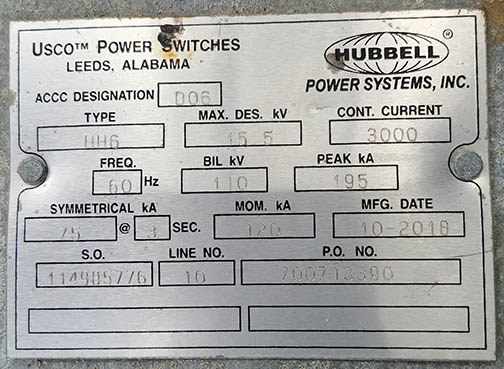 USCO™ POWER SWITCHES
LEEDS, ALABAMA
HUBBELL ®
POWER SYSTEMS, INC.
ACCC DESIGNATION D06
TYPE MAX. DES. kV CONT. CURRENT
HH6 15.5 3000
FREQ. BIL kV PEAK kA
60 Hz 110 195
SYMMETRICAL kA MOM. kA MFG. DATE
75 @ 3 SEC. 120 10-2018
S.O. LINE NO. P.O. NO.
114985776 10 700713390